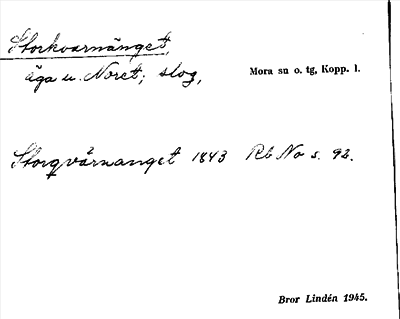 Storkvarnänget,
äga u. Noret; slog,
Mora sn o. tg, Kopp. l.
Storqvärnanget 1843 Rb No s. 92.
Bror Lindén 1945.